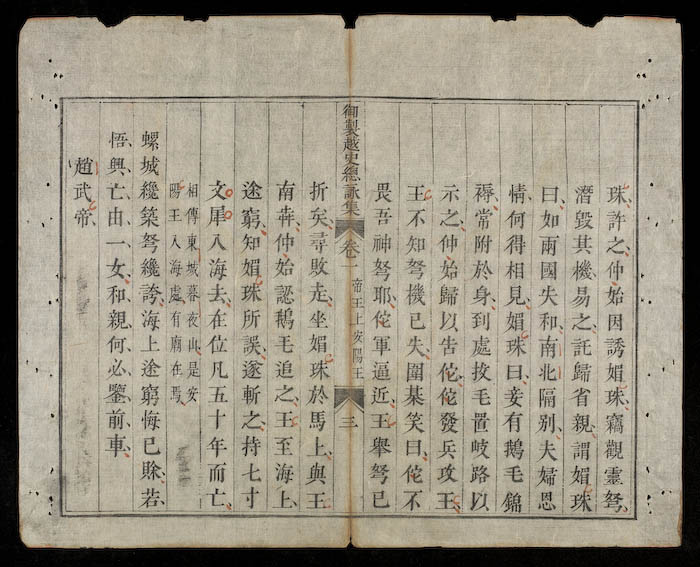 珠許之仲始因誘媚珠竊觀靈弩
潛毀其機易之託歸省親謂媚珠
曰如兩國失和南北隔別夫婦恩
情何得相見媚珠曰妾有鵝毛錦
褥常附於身到處拔毛置岐路以
示之仲始歸以告佗佗發兵攻王
王不知弩機已失圍棊笑曰佗不
畏吾神弩耶佗軍逼近王舉弩已
御製越史總詠集 卷一 帝王上安陽王 三
折矣尋敗走坐媚珠於馬上與王
南犇仲始認鵝毛追之王至海上
途窮知媚珠所誤遂斬之持七寸
文犀入海去在位凡五十年而亡
相傳東城暮夜山是安
陽王入海處有廟在焉
螺城纔築弩纔誇海上途窮悔已賒若
悟興亡由一女和親何必鑒前車
趙武帝